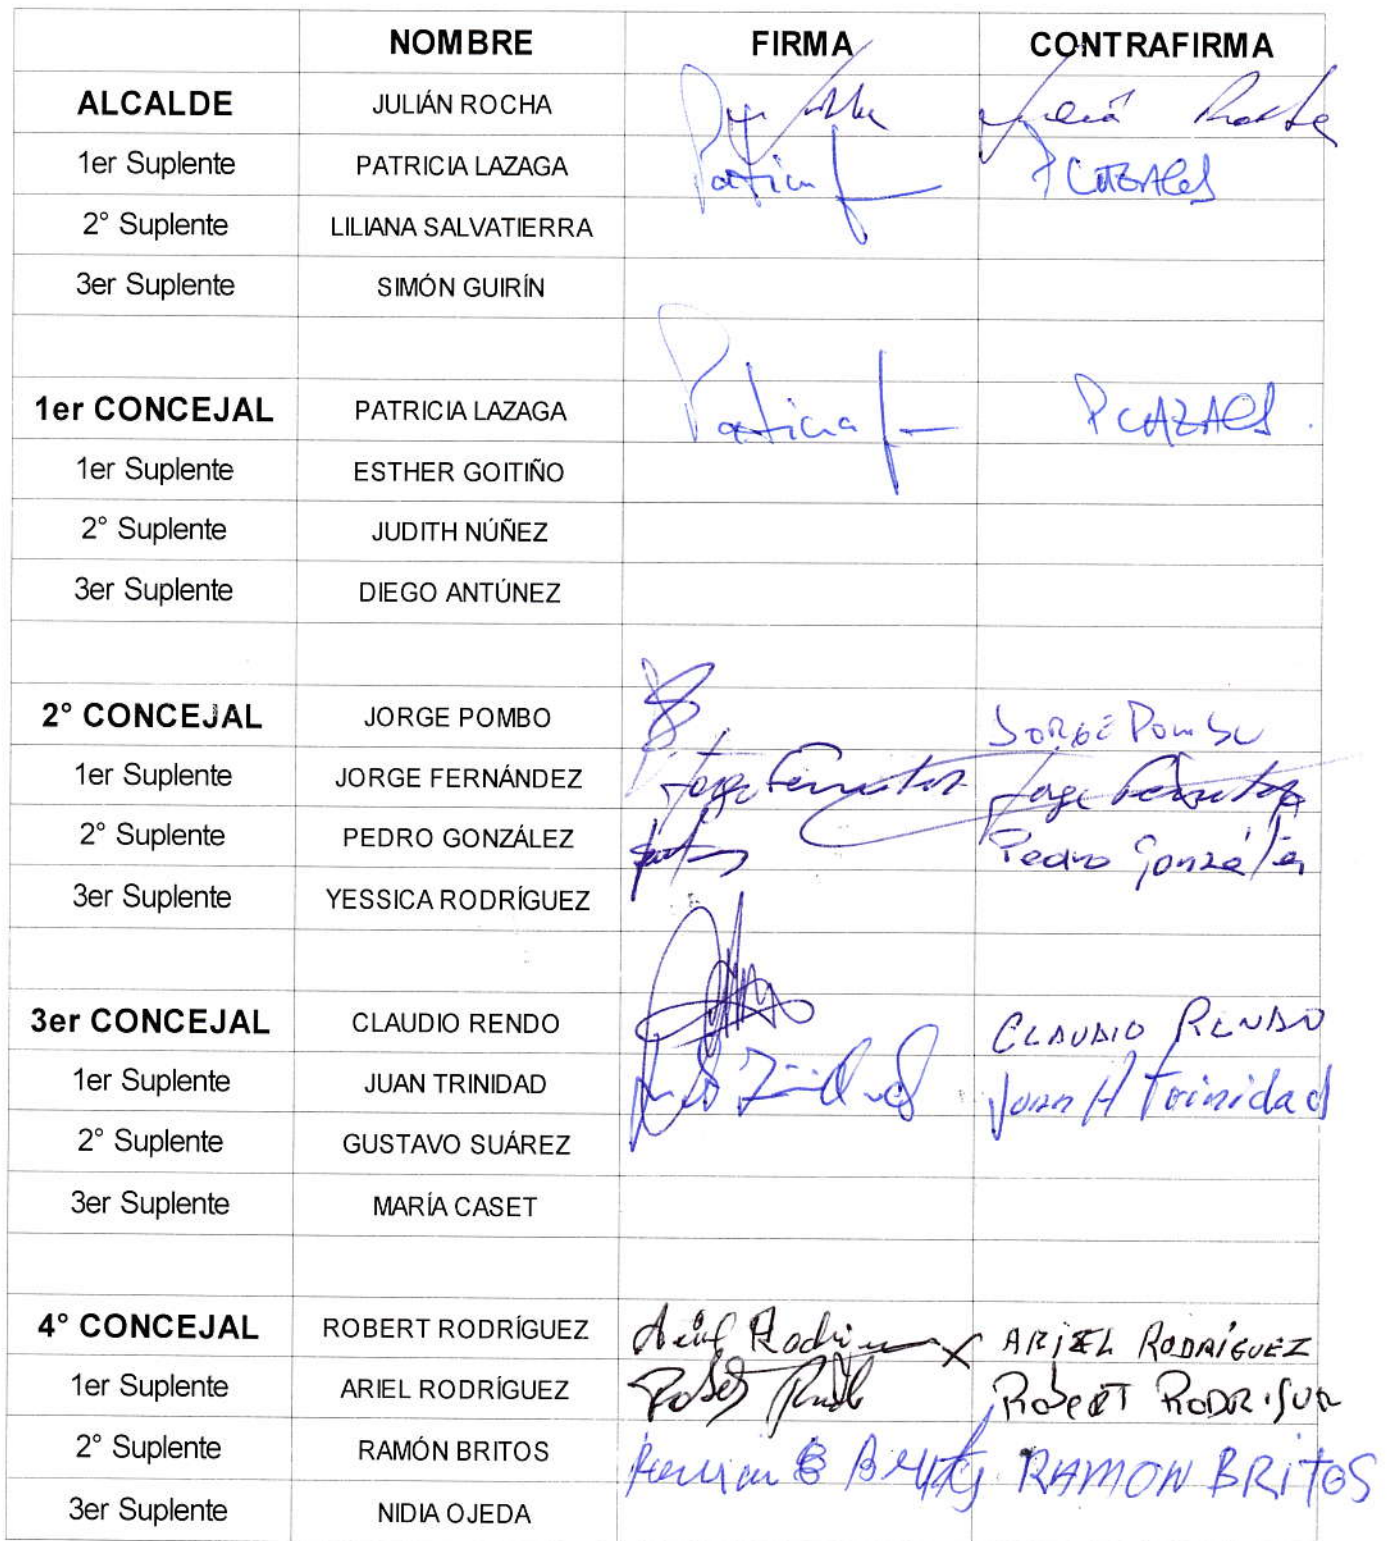 NOMBRE FIRMA CONTRAFIRMA
ALCALDE JULIÁN ROCHA
1er Suplente PATRICIA LAZAGA Patricia P CAZALES
2° Suplente LILIANA SALVATIERRA
3er Suplente SIMÓN GUIRÍN
1er CONCEJAL PATRICIA LAZAGA Patricia P CAZALES
1er Suplente ESTHER GOITIÑO
2° Suplente JUDITH NÚÑEZ
3er Suplente DIEGO ANTÚNEZ
2° CONCEJAL JORGE POMBO JORGE Pombo
1er Suplente JORGE FERNÁNDEZ Jorge Jorge
2° Suplente PEDRO GONZÁLEZ Pedro González
3er Suplente YESSICA RODRÍGUEZ
3er CONCEJAL CLAUDIO RENDO CLAUDIO RENDO
1er Suplente JUAN TRINIDAD Juan A Trinidad
2° Suplente GUSTAVO SUÁREZ
3er Suplente MARÍA CASET
4° CONCEJAL ROBERT RODRÍGUEZ ARIEL RODRÍGUEZ
1er Suplente ARIEL RODRÍGUEZ ROBERT
2° Suplente RAMÓN BRITOS RAMON BRITOS
3er Suplente NIDIA OJEDA